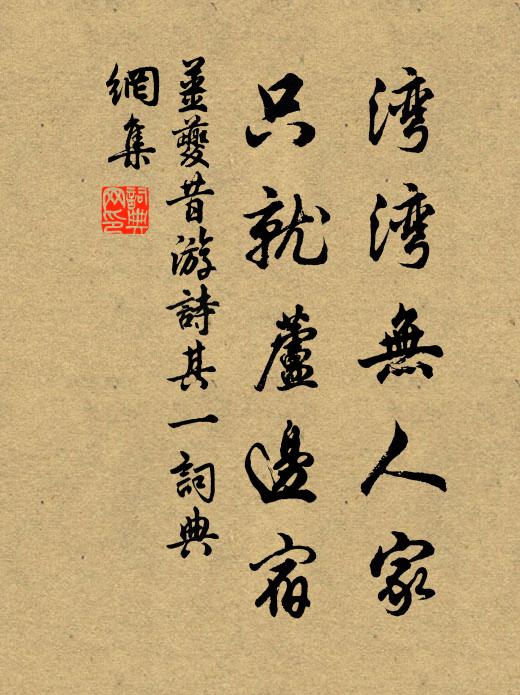 湾湾無人家
只就蘆邊宿
姜夔昔游詩其一詞典
網集
詞典网印